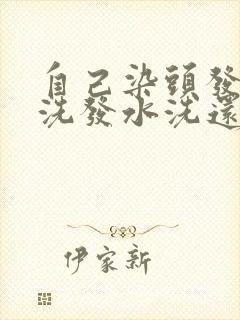 自己染頭發
洗發水洗還
伊家新